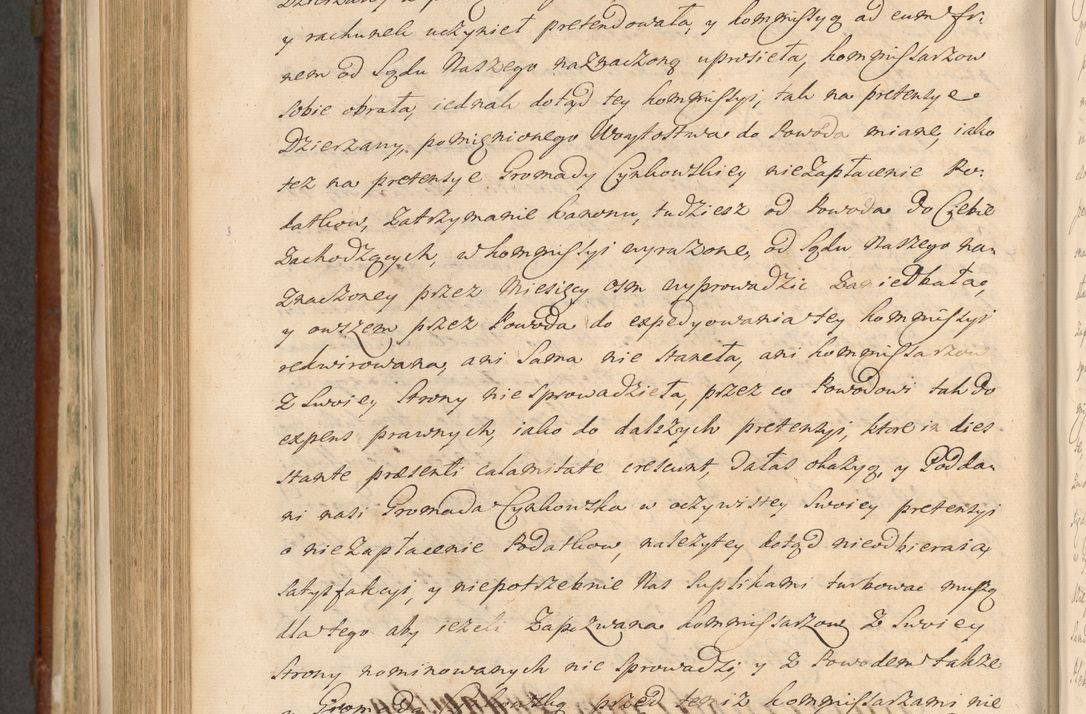 y rachunek uczynieł pretendowała, y kommissyą ad eum fi-
nem od Sądu Naszego naznaczoną uprosieła, kommissarzow
sobie obrała, iednak dotąd tey kommissyi, tak na pretensye
Dzierzawy, pomięnionego Woytostwa do Powoda miane, iako
tez na pretensye Gromady Cynkowskiey nieZapłacenie Po-
datkow, Zatrzymanie kanonu, tudziesz od Powoda do Ciebie
Zachodzących, w kommissyi wyrazone, od Sądu Naszego na-
Znaczoney przez Miesięcy osm wyprowadzic Zaniedbała,
y owszem przez Powoda do expedyowania tey kommissyi
rekwirowana, ani Sama nie staneła, ani kommissarzow
Z Swoiey Strony nie Sprowadzieła, przez co Powodowi tak do
expens prawnych, iako do dalszych pretensyi, ktore in dies
stante præsenti calamitate crescunt, dałaś okazyą, y Podda-
ni nasi Gromada Cynkowska w oczywistey Swoiey pretensyi
o nieZapłacenie Podatkow, nalezytey dotąd nieodbieraią
Satysfakcyi, y niepotrzebnie Nas Suplikami turbowac muszą
dlatego aby iezeli Zapozwana kommissarzow Z Swoiey
Strony nominowanych nie Sprowadzi, y Z Powodem także
przed temiz kommissarzami nie